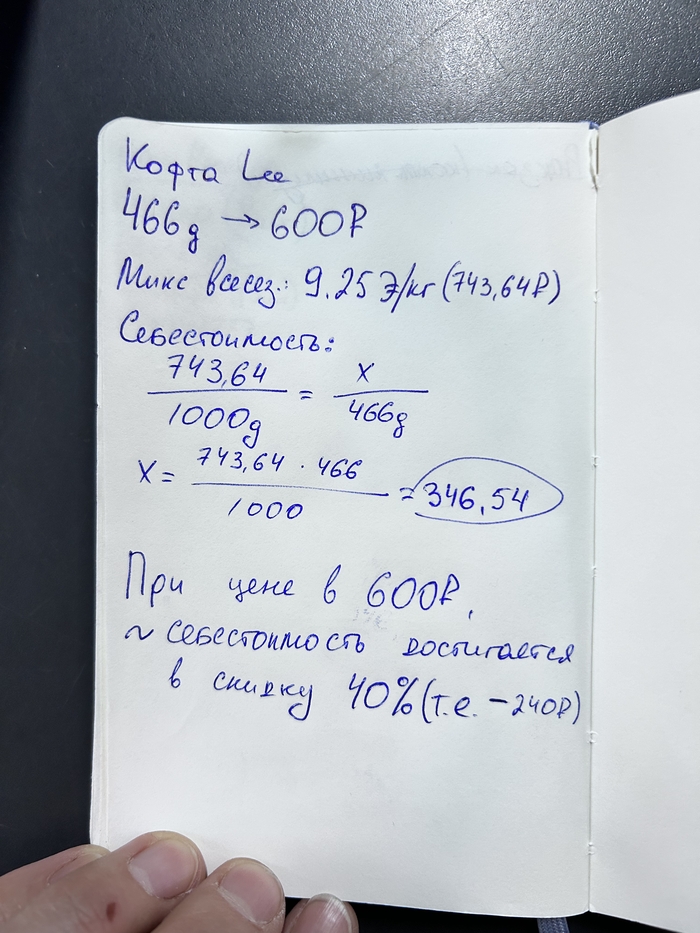 Кофта Lee
466g → 600₽
Микс всесез.: 9.25 Э/кг (743,64₽)
Себестоимость:
743,64 / 1000g = x / 466g
X = 743,64 · 466 / 1000 = 346,54
При цене в 600₽,
~ себестоимость достигается
в скидку 40% (т.е. -240₽)